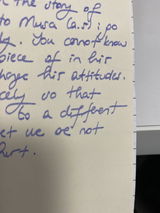 the story of
to Musa (a.s): so
You cannot know
piece of in his
change his attitudes.
so that
to a different
let us be not
hurt.